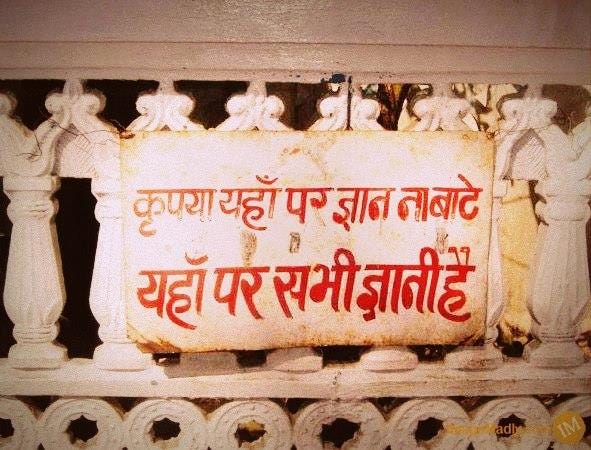 कृपया यहाँ पर ज्ञान ना बाटे
यहाँ पर सभी ज्ञानी है
1M